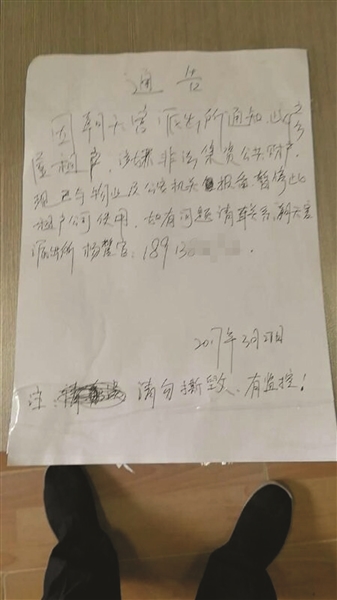 通告
因朝天宫派出所通知
室租户，涉嫌非法集资公共财产，
现已与物业及公安机关报备暂停此
租户公司使用，如有问题请联系，朝天宫
派出所 杨警官：18913
2017年3月21日
注： 请勿撕毁、有监控！